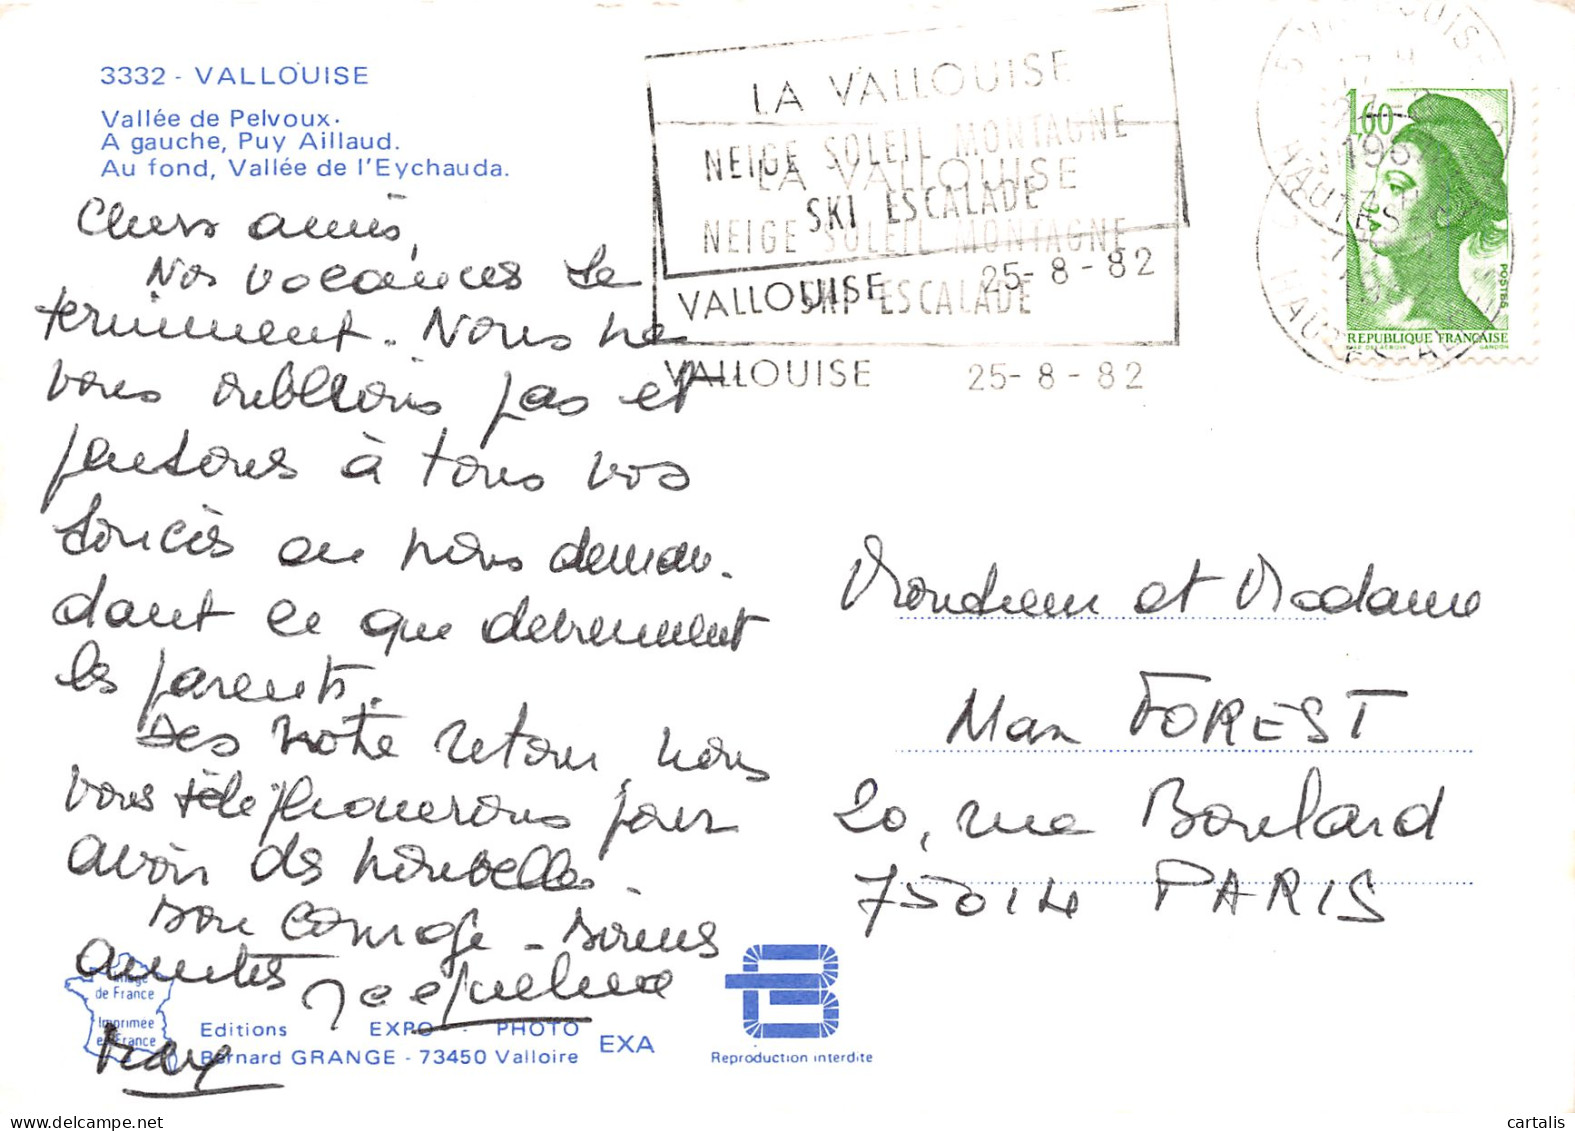 3332 - VALLOUISE
Vallée de Pelvoux.
A gauche, Puy Aillaud.
Au fond, Vallée de l'Eychauda.
Chers amis,
Nos vacances se
terminent. Nous ne
vous oublions pas et
pensons à tous vos
soucis en nous deman-
dant ce que deviennent
les parents.
Dès notre retour, nous
vous téléphonerons pour
avoir des nouvelles.
Bon courage - Bonnes
amitiés Jacqueline
Max
LA VALLOUISE
NEIGE SOLEIL MONTAGNE
SKI ESCALADE
VALLOUISE 25-8-82
LA VALLOUISE
NEIGE SOLEIL MONTAGNE
SKI ESCALADE
VALLOUISE 25-8-82
HAUTES
1,60
POSTES
REPUBLIQUE FRANÇAISE
GANDON
Monsieur et Madame
Max FOREST
20, rue Boulard
75014 PARIS
Image
de France
Imprimée
en France
Editions EXPO - PHOTO
Bernard GRANGE - 73450 Valloire
EXA
Reproduction interdite
cartalis